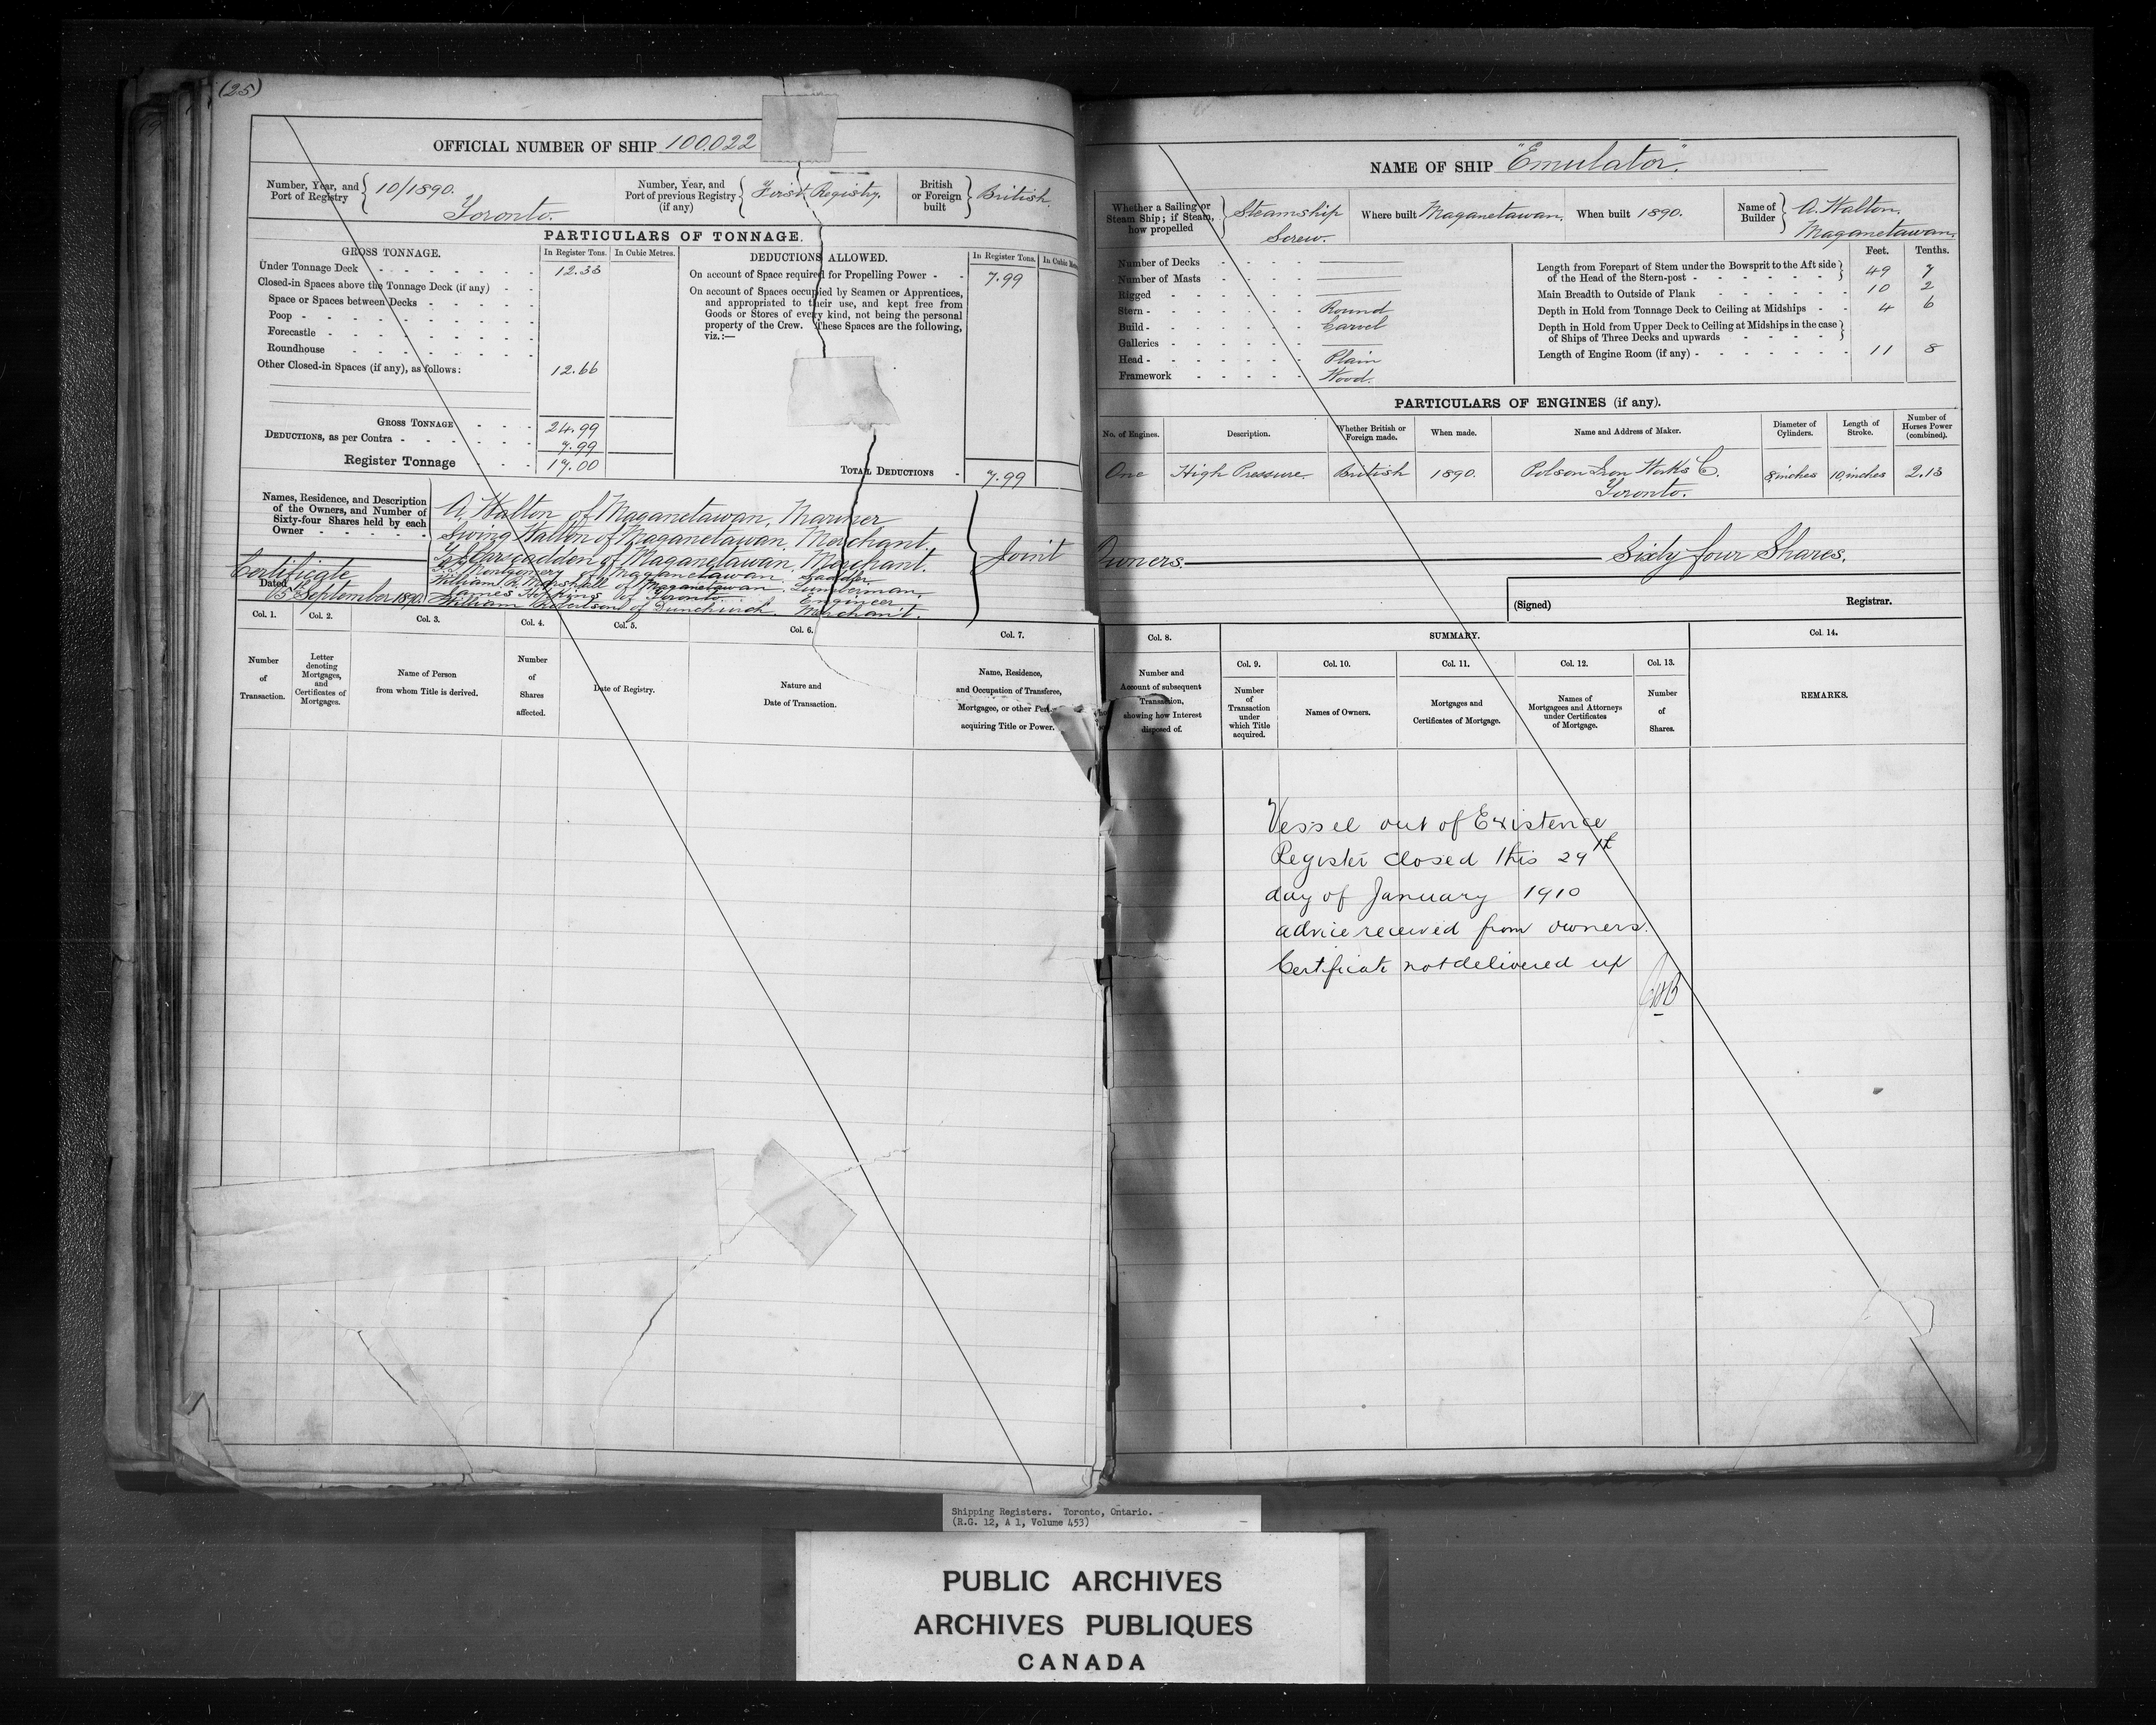 (25)
OFFICIAL NUMBER OF SHIP 100.022
Number, Year, and Port of Registry 10/1890. Toronto.
Number, Year, and Port of previous Registry (if any) First Registry.
British or Foreign built British.
PARTICULARS OF TONNAGE.
GROSS TONNAGE. In Register Tons. In Cubic Metres.
Under Tonnage Deck 12.33
Closed-in Spaces above the Tonnage Deck (if any)
Space or Spaces between Decks
Poop
Forecastle
Roundhouse
Other Closed-in Spaces (if any), as follows: 12.66
GROSS TONNAGE 24.99
DEDUCTIONS, as per Contra 7.99
Register Tonnage 17.00
DEDUCTIONS ALLOWED. In Register Tons. In Cubic
On account of Space required for Propelling Power 7.99
On account of Spaces occupied by Seamen or Apprentices,
and appropriated to their use, and kept free from
Goods or Stores of every kind, not being the personal
property of the Crew. These Spaces are the following,
viz.:—
TOTAL DEDUCTIONS 7.99
Names, Residence, and Description
of the Owners, and Number of
Sixty-four Shares held by each
Owner
A. Walton of Maganetawan, Mariner
Walton of Maganetawan, Merchant.
of Maganetawan, Merchant.
Montgomery of Maganetawan,
William R. Marshall of Maganetawan, Lumberman,
James Hopkins of Toronto Engineer
William Robertson of Dunchurch Merchant.
Joint
Certificate
Dated
15 September 1890.
Col. 1. Col. 2. Col. 3. Col. 4. Col. 5. Col. 6. Col. 7.
Number of Transaction.
Letter denoting Mortgages, and Certificates of Mortgages.
Name of Person from whom Title is derived.
Number of Shares affected.
Date of Registry.
Nature and Date of Transaction.
Name, Residence, and Occupation of Transferee, Mortgagee, or other Person acquiring Title or Power.
NAME OF SHIP "Emulator".
Whether a Sailing or Steam Ship; if Steam, how propelled Steamship Screw.
Where built Maganetawan.
When built 1890.
Name of Builder A. Walton, Maganetawan.
Number of Decks
Number of Masts
Rigged
Stern Round
Build Carvel
Galleries
Head Plain
Framework Wood.
Feet. Tenths.
Length from Forepart of Stem under the Bowsprit to the Aft side
of the Head of the Stern-post 49 7
Main Breadth to Outside of Plank 10 2
Depth in Hold from Tonnage Deck to Ceiling at Midships 4 6
Depth in Hold from Upper Deck to Ceiling at Midships in the case
of Ships of Three Decks and upwards
Length of Engine Room (if any) 11 8
PARTICULARS OF ENGINES (if any).
No. of Engines. Description. Whether British or Foreign made. When made. Name and Address of Maker. Diameter of Cylinders. Length of Stroke. Number of Horses Power (combined).
One High Pressure British 1890. Polson Iron Works Co. Toronto. 8 inches 10 inches 2.13
Owners. Sixty four Shares.
(Signed) Registrar.
Col. 8. SUMMARY. Col. 14.
Col. 9. Col. 10. Col. 11. Col. 12. Col. 13.
Number and Account of subsequent Transaction, showing how Interest disposed of.
Number of Transaction under which Title acquired.
Names of Owners.
Mortgages and Certificates of Mortgage.
Names of Mortgagees and Attorneys under Certificates of Mortgage.
Number of Shares.
REMARKS.
Vessel out of Existence
Register closed this 29th
day of January 1910
advice received from owners.
Certificate not delivered up
Shipping Registers. Toronto, Ontario.
(R.G. 12, A 1, Volume 453)
PUBLIC ARCHIVES
ARCHIVES PUBLIQUES
CANADA